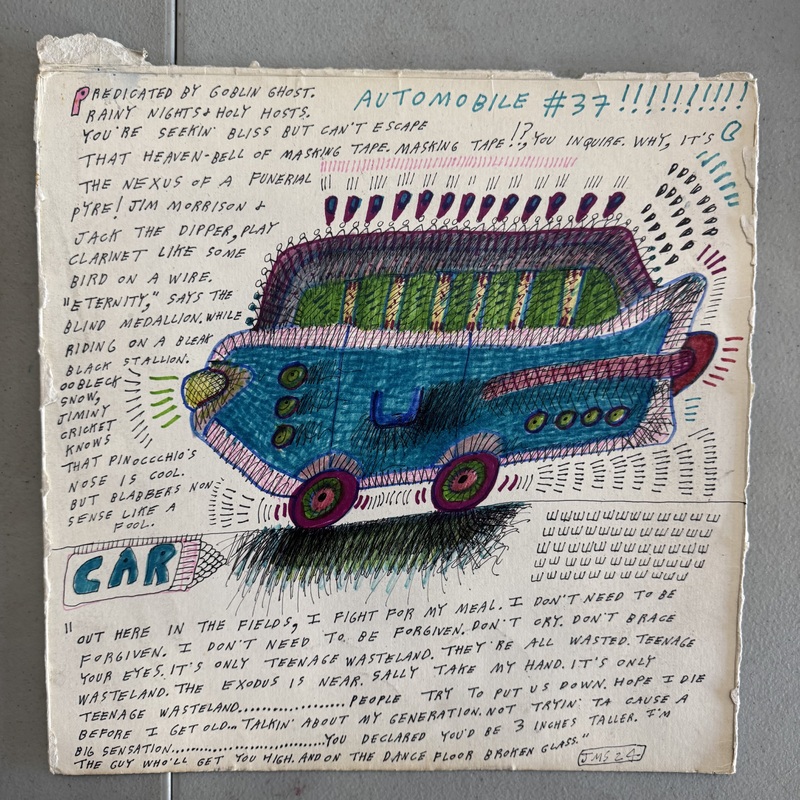 PREDICATED BY GOBLIN GHOST.
AUTOMOBILE #37!!!!!!!!!!
RAINY NIGHTS & HOLY HOSTS.
YOU'RE SEEKIN' BLISS BUT CAN'T ESCAPE
THAT HEAVEN-BELL OF MASKING TAPE. MASKING TAPE!?, YOU INQUIRE. WHY, IT'S
THE NEXUS OF A FUNERIAL
PYRE! JIM MORRISON &
JACK THE DIPPER, PLAY
CLARINET LIKE SOME
BIRD ON A WIRE.
"ETERNITY," SAYS THE
BLIND MEDALLION. WHILE
RIDING ON A BLEAK
BLACK STALLION.
OOBLECK
SNOW,
JIMINY
CRICKET
KNOWS
THAT PINOCCCHIO'S
NOSE IS COOL.
BUT BLABBERS NON
SENSE LIKE A
FOOL.
CAR
"OUT HERE IN THE FIELDS, I FIGHT FOR MY MEAL. I DON'T NEED TO BE
FORGIVEN. I DON'T NEED TO BE FORGIVEN. DON'T CRY. DON'T BRACE
YOUR EYES. IT'S ONLY TEENAGE WASTELAND. THEY'RE ALL WASTED. TEENAGE
WASTELAND. THE EXODUS IS NEAR. SALLY TAKE MY HAND. IT'S ONLY
TEENAGE WASTELAND..............PEOPLE TRY TO PUT US DOWN. HOPE I DIE
BEFORE I GET OLD... TALKIN' ABOUT MY GENERATION. NOT TRYIN' TA CAUSE A
BIG SENSATION........................YOU DECLARED YOU'D BE 3 INCHES TALLER. I'M
THE GUY WHO'LL GET YOU HIGH. AND ON THE DANCE FLOOR BROKEN GLASS."
JMS 24